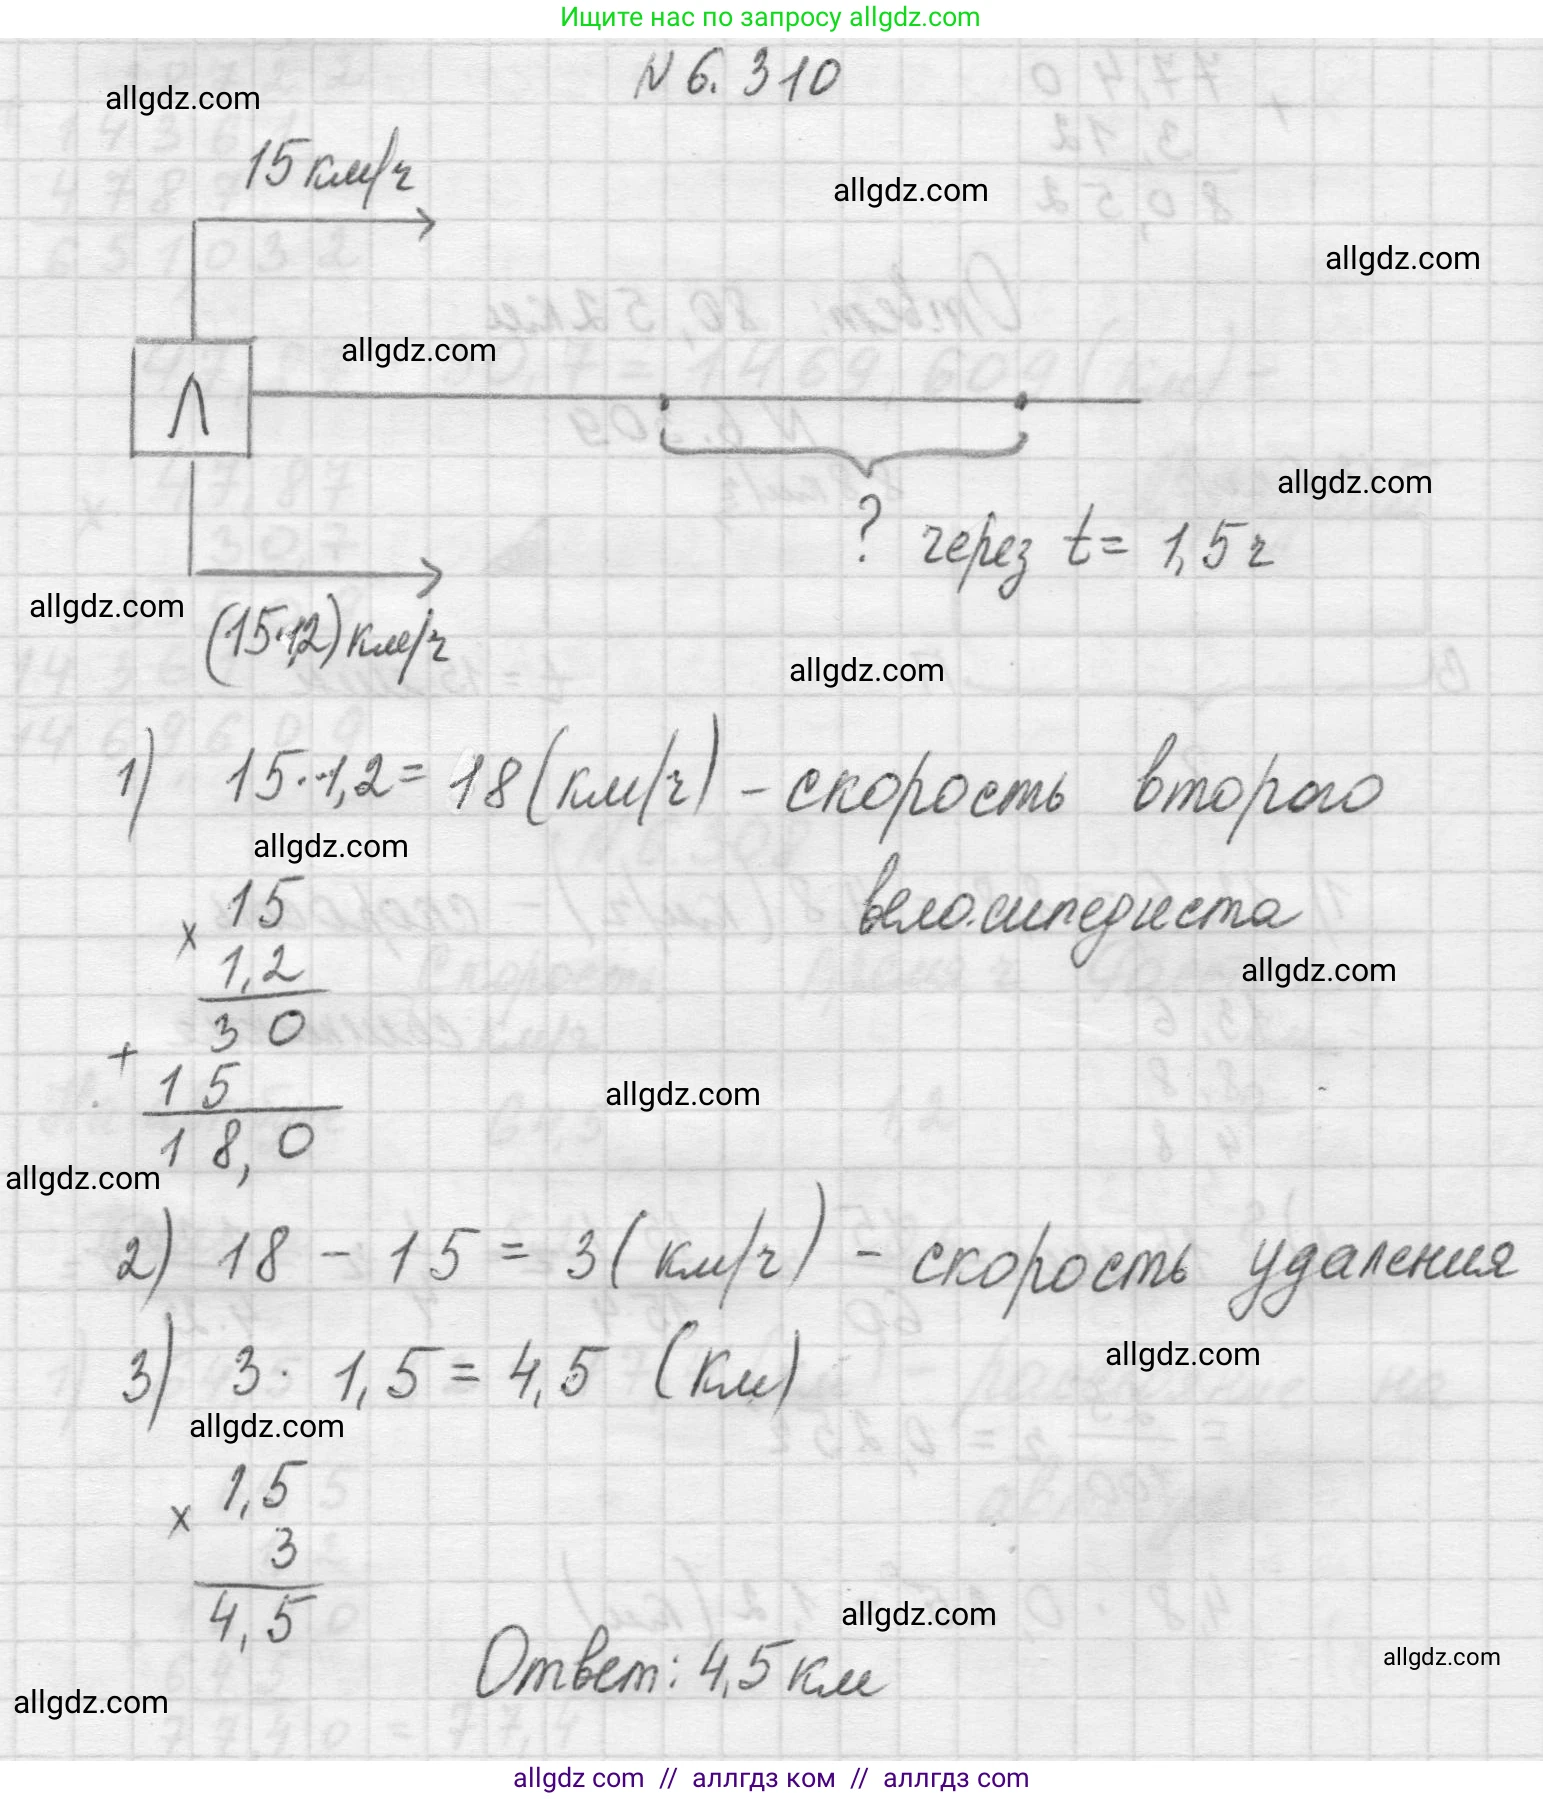 Ищите нас по запросу allgdz.com
N 6.310
allgdz.com
15 км/ч
allgdz.com
allgdz.com
allgdz.com
Л
allgdz.com
? через t = 1,5 ч
allgdz.com
(15·1,2) км/ч
allgdz.com
1) 15·1,2 = 18 (км/ч) - скорость второго
allgdz.com
велосипедиста
× 15
1,2
allgdz.com
30
+ 15
allgdz.com
18,0
allgdz.com
2) 18 - 15 = 3 (км/ч) - скорость удаления
3) 3 · 1,5 = 4,5 (км)
allgdz.com
allgdz.com
× 1,5
3
4,5
allgdz.com
Ответ: 4,5 км
allgdz.com
allgdz.com
allgdz com // аллгдз ком // аллгдз com